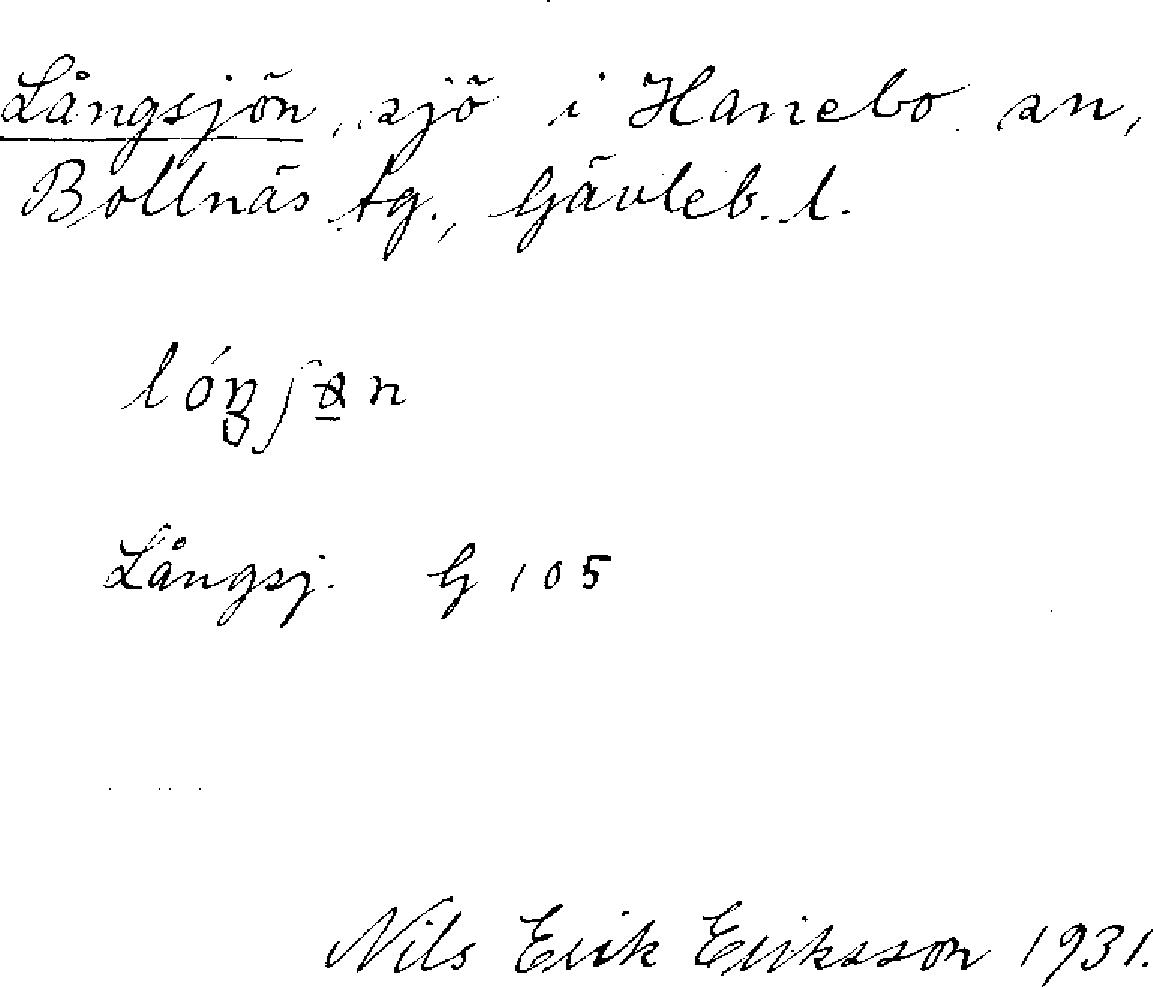 Långsjön, sjö i Hanebo sn,
Bollnäs tg., Gävleb. l.
Långsj. G 105
Nils Erik Eriksson 1931.